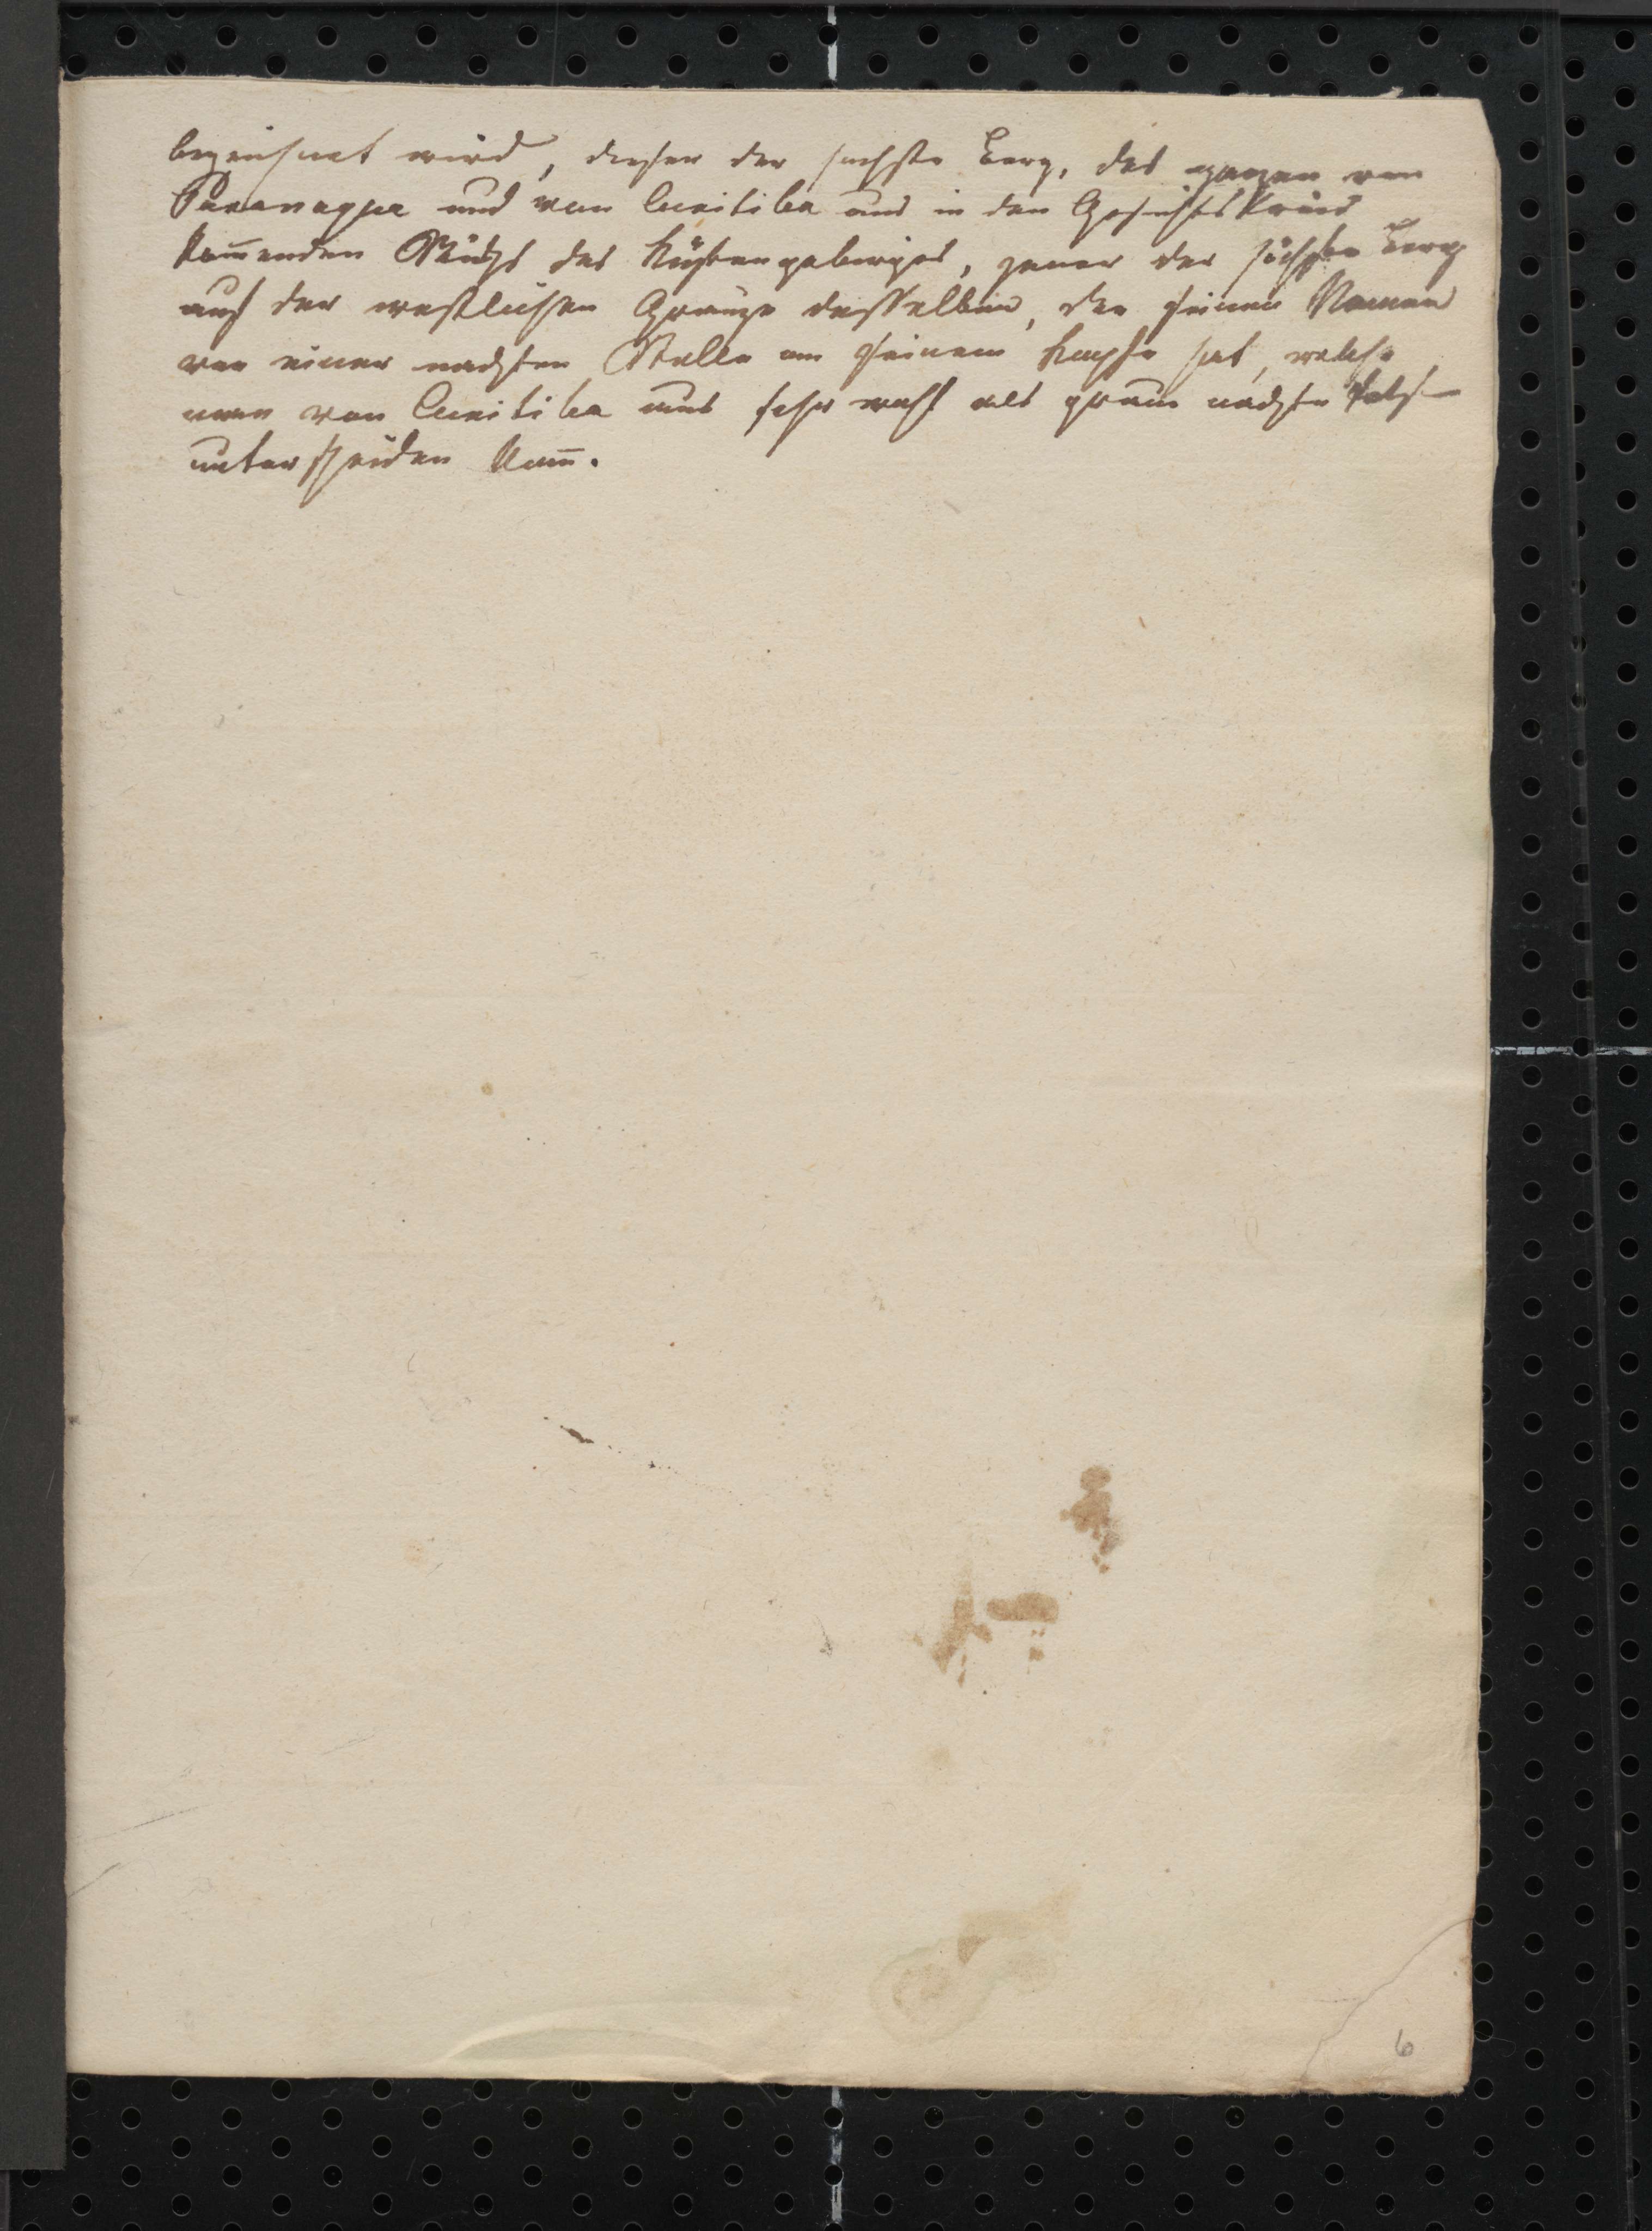 bezeichnet wird, dieser der höchste Berg, des ganzen von
Paranagua und von Curitiba aus in den Gesichtskreis
kom̅enden Stücks des Küstengebirges, jener der höchste Berg
auf der westlichen Gränze desselben, der seinen Namen
von einer nackten Stelle am seinem Kopfe hat, welche
man von Curitiba aus sehr wohl als graue nackte Fels
unterscheiden kan̅.
6